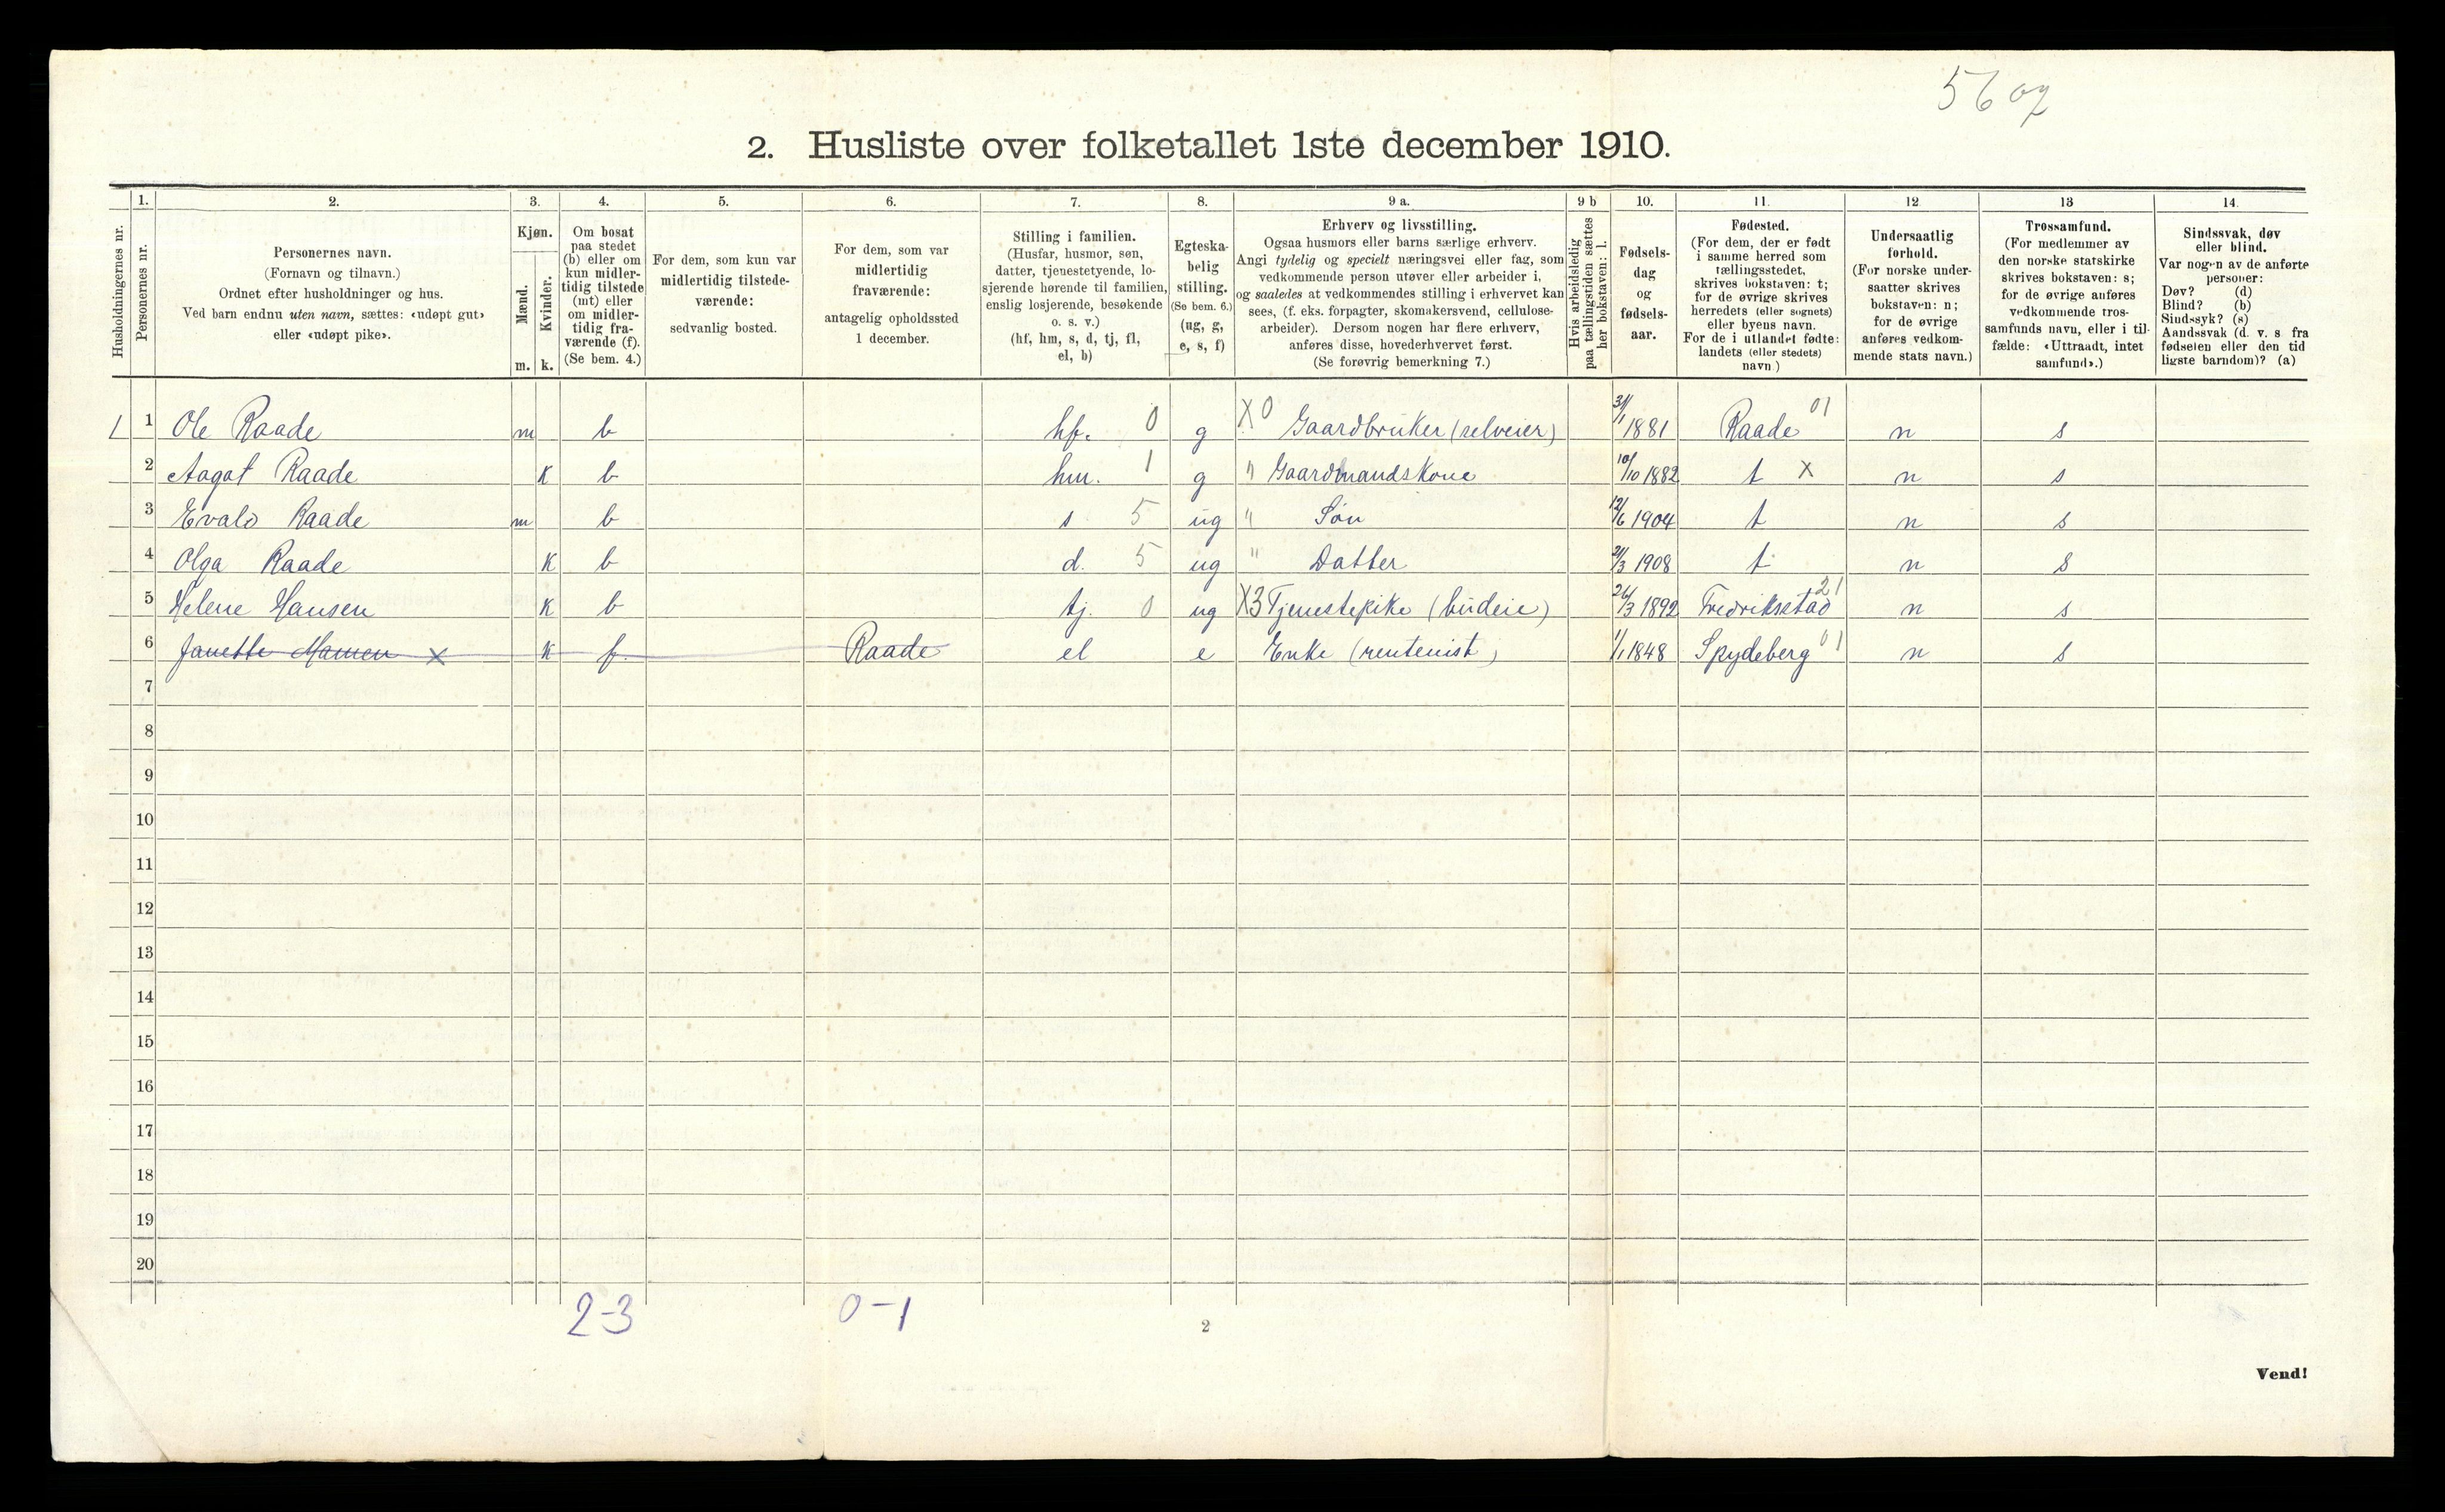 56 og
2. Husliste over folketallet 1ste december 1910.
Husholdningernes nr.
1.
Personernes nr.
2.
Personernes navn.
(Fornavn og tilnavn.)
Ordnet efter husholdninger og hus.
Ved barn endnu uten navn, sættes: «udøpt gut»
eller «udøpt pike».
3.
Kjøn.
Mænd.
Kvinder.
m. k.
4.
Om bosat
paa stedet
(b) eller om
kun midler-
tidig tilstede
(mt) eller
om midler-
tidig fra-
værende (f).
(Se bem. 4.)
5.
For dem, som kun var
midlertidig tilstede-
værende:
sedvanlig bosted.
6.
For dem, som var
midlertidig
fraværende:
antagelig opholdssted
1 december.
7.
Stilling i familien.
(Husfar, husmor, søn,
datter, tjenestetyende, lo-
sjerende hørende til familien,
enslig losjerende, besøkende
o. s. v.)
(hf, hm, s, d, tj, fl,
el, b)
8.
Egteska-
belig
stilling.
(Se bem. 6.)
(ug, g,
e, s, f)
9 a.
Erhverv og livsstilling.
Ogsaa husmors eller barns særlige erhverv.
Angi tydelig og specielt næringsvei eller fag, som
vedkommende person utøver eller arbeider i,
og saaledes at vedkommendes stilling i erhvervet kan
sees, (f. eks. forpagter, skomakersvend, cellulose-
arbeider). Dersom nogen har flere erhverv,
anføres disse, hovederhvervet først.
(Se forøvrig bemerkning 7.)
9 b
Hvis arbeidsledig
paa tællingstiden sættes
her bokstaven: l.
10.
Fødsels-
dag
og
fødsels-
aar.
11.
Fødested.
(For dem, der er født
i samme herred som
tællingsstedet,
skrives bokstaven: t;
for de øvrige skrives
herredets (eller sognets)
eller byens navn.
For de i utlandet fødte:
landets (eller stedets)
navn.)
12
Undersaatlig
forhold.
(For norske under-
saatter skrives
bokstaven: n;
for de øvrige
anføres vedkom-
mende stats navn.)
13
Trossamfund.
(For medlemmer av
den norske statskirke
skrives bokstaven: s;
for de øvrige anføres
vedkommende tros-
samfunds navn, eller i til-
fælde: «Uttraadt, intet
samfund».)
14.
Sindssvak, døv
eller blind.
Var nogen av de anførte
personer:
Døv? (d)
Blind? (b)
Sindssyk? (s)
Aandssvak (d. v. s. fra
fødselen eller den tid
ligste barndom)? (a)
1 1 Ole Raade m b hf. 0 g X0 Gaardbruker (selveier) 31/1 1881 Raade 01 n s
2 Aagot Raade k b hm. 1 g " Gaardmandskone 10/10 1882 t X n s
3 Evald Raade m b s 5 ug " Søn 12/6 1904 t n s
4 Olga Raade k b d. 5 ug " Datter 21/3 1908 t n s
5 Helene Hansen k b tj. 0 ug X3 Tjenestepike (budeie) 26/3 1892 Fredriksstad 21 n s
6 Janette Mamen X k f. Raade el e Enke (rentenist) 1/1 1848 Spydeberg 01 n s
7
8
9
10
11
12
13
14
15
16
17
18
19
20
2-3 0-1
2
Vend!